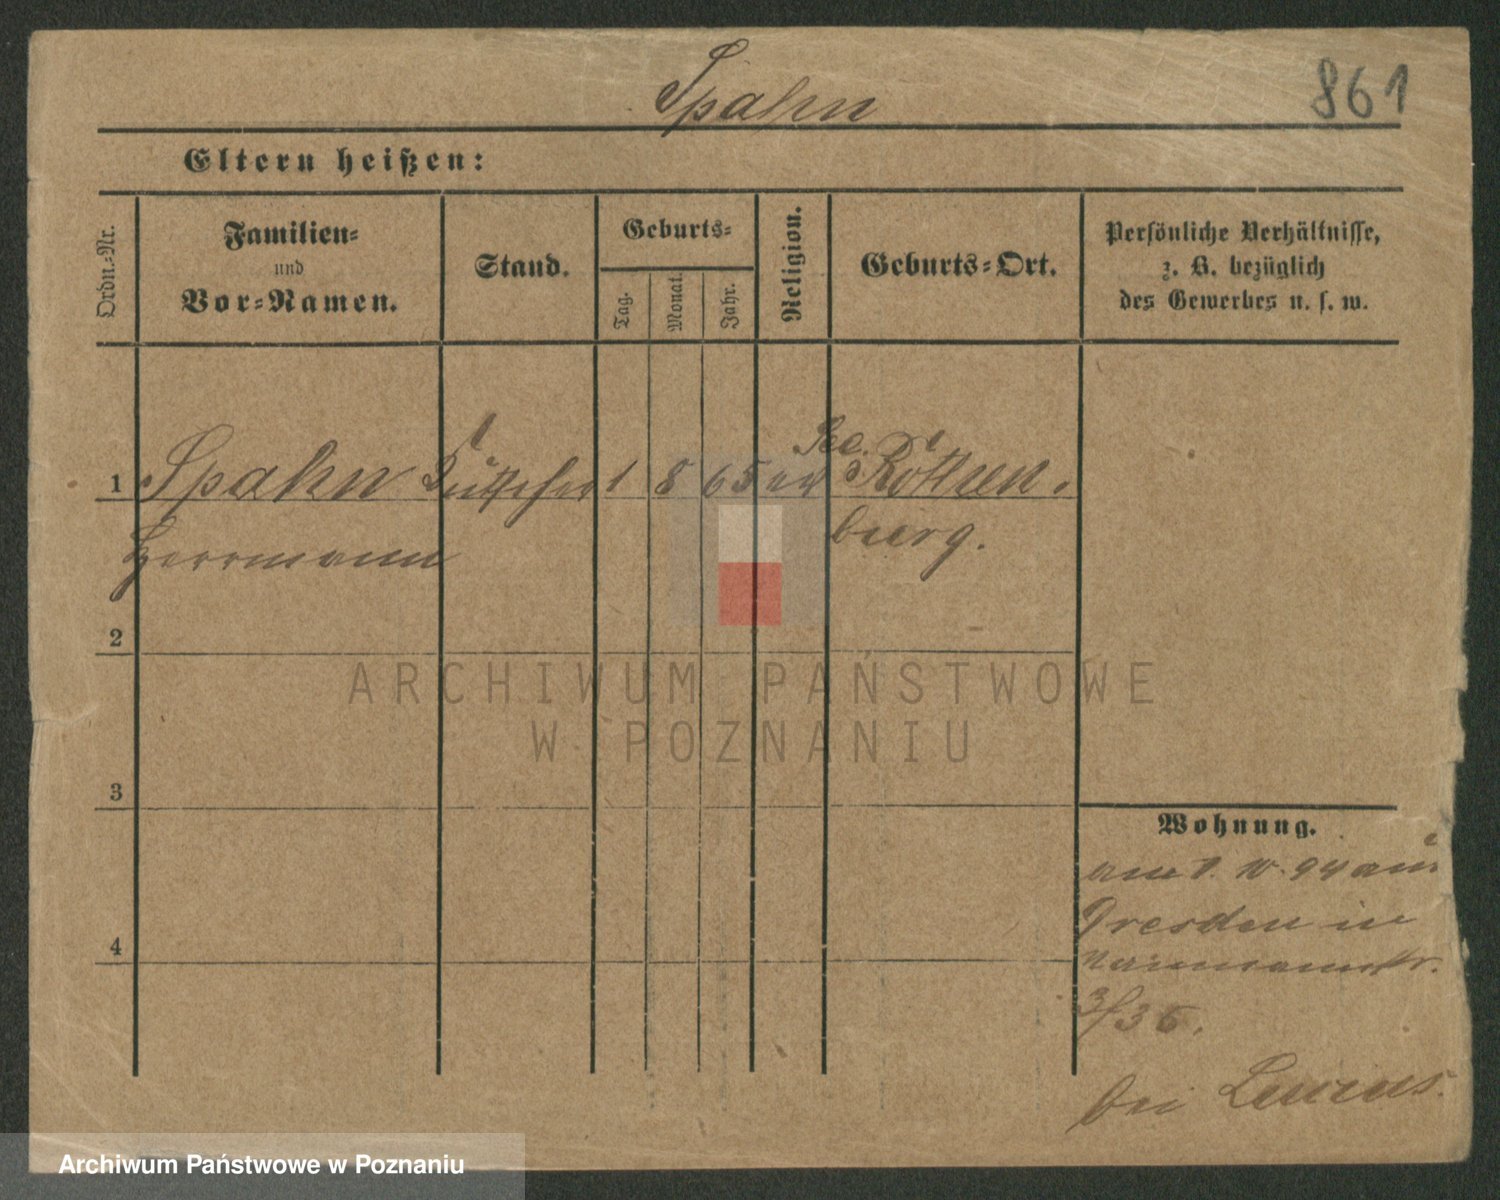 Spahn
861
Eltern heißen:
Ordn.-Nr.
Familien-
und
Vor-Namen.
Stand.
Geburts-
Tag.
Monat.
Jahr.
Religion.
Geburts-Ort.
Persönliche Verhältnisse,
z. B. bezüglich
des Gewerbes u. s. w.
1 Spahn 1 8 65 ev
Herrmann burg.
2
3
4
Wohnung.
am 1. 10. 94 aus
Dresden in
Naumannstr.
3/35.
bei
ARCHIWUM PAŃSTWOWE
W POZNANIU
Archiwum Państwowe w Poznaniu